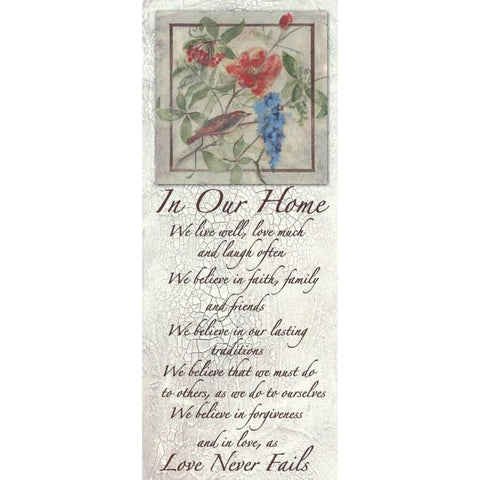 In Our Home
We live well, love much
and laugh often
We believe in faith, family
and friends
We believe in our lasting
traditions
We believe that we must do
to others, as we do to ourselves
We believe in forgiveness
and in love, as
Love Never Fails